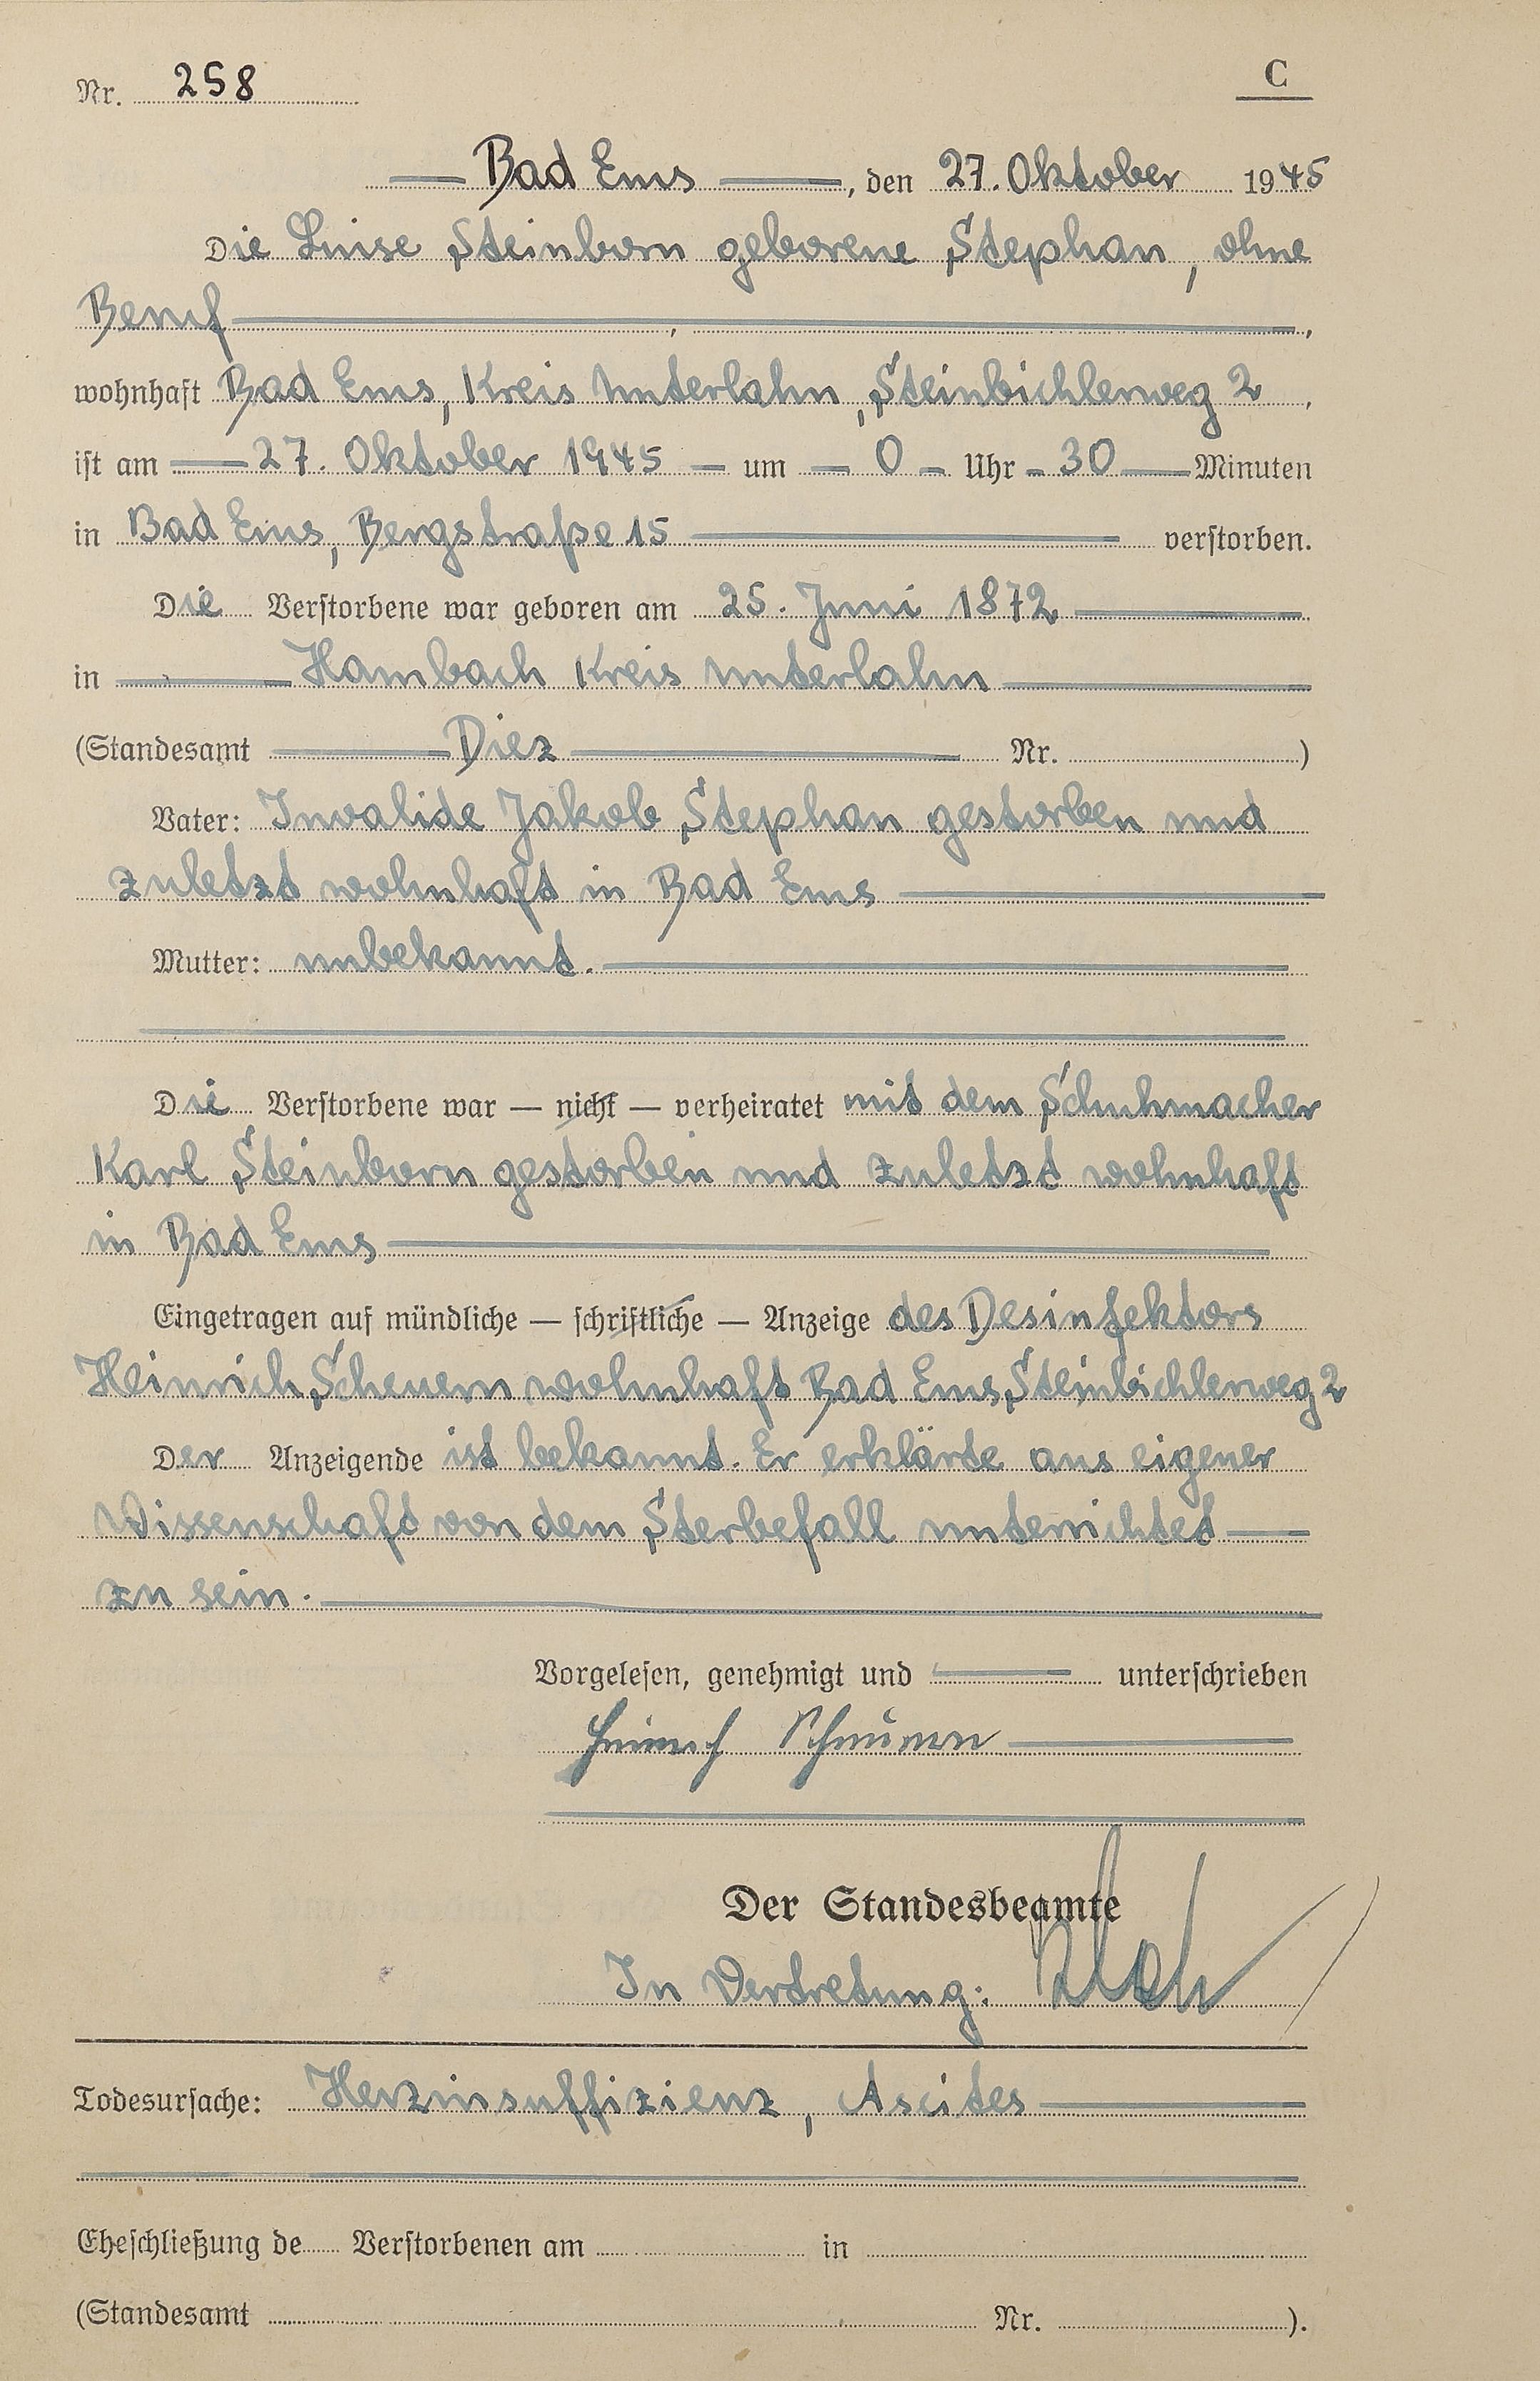 Nr. 258
C
Bad Ems, den 27. Oktober 1945
Die Luise Steinborn geborene Stephan, ohne
Beruf, ,
wohnhaft Bad Ems, Kreis Unterlahn, Steinbichlerweg 2,
ist am 27. Oktober 1945 um 0 Uhr 30 Minuten
in Bad Ems, Bergstraße 15 verstorben.
Die Verstorbene war geboren am 25. Juni 1872
in Hambach Kreis Unterlahn
(Standesamt Diez Nr. )
Vater: Invalide Jakob Stephan gestorben und
zuletzt wohnhaft in Bad Ems
Mutter: unbekannt.
Die Verstorbene war — nicht — verheiratet mit dem Schuhmacher
Karl Steinborn gestorben und zuletzt wohnhaft
in Bad Ems
Eingetragen auf mündliche — schriftliche — Anzeige des Desinfektors
Heinrich Scheuern wohnhaft Bad Ems, Steinbichlerweg 2
Der Anzeigende ist bekannt. Er erklärte aus eigener
Wissenschaft von dem Sterbefall unterrichtet
zu sein.
Vorgelesen, genehmigt und unterschrieben
Heinrich Scheuern
Der Standesbeamte
In Vertretung:
Todesursache: Herzinsuffizienz, Ascites
Eheschließung de Verstorbenen am in
(Standesamt Nr. ).